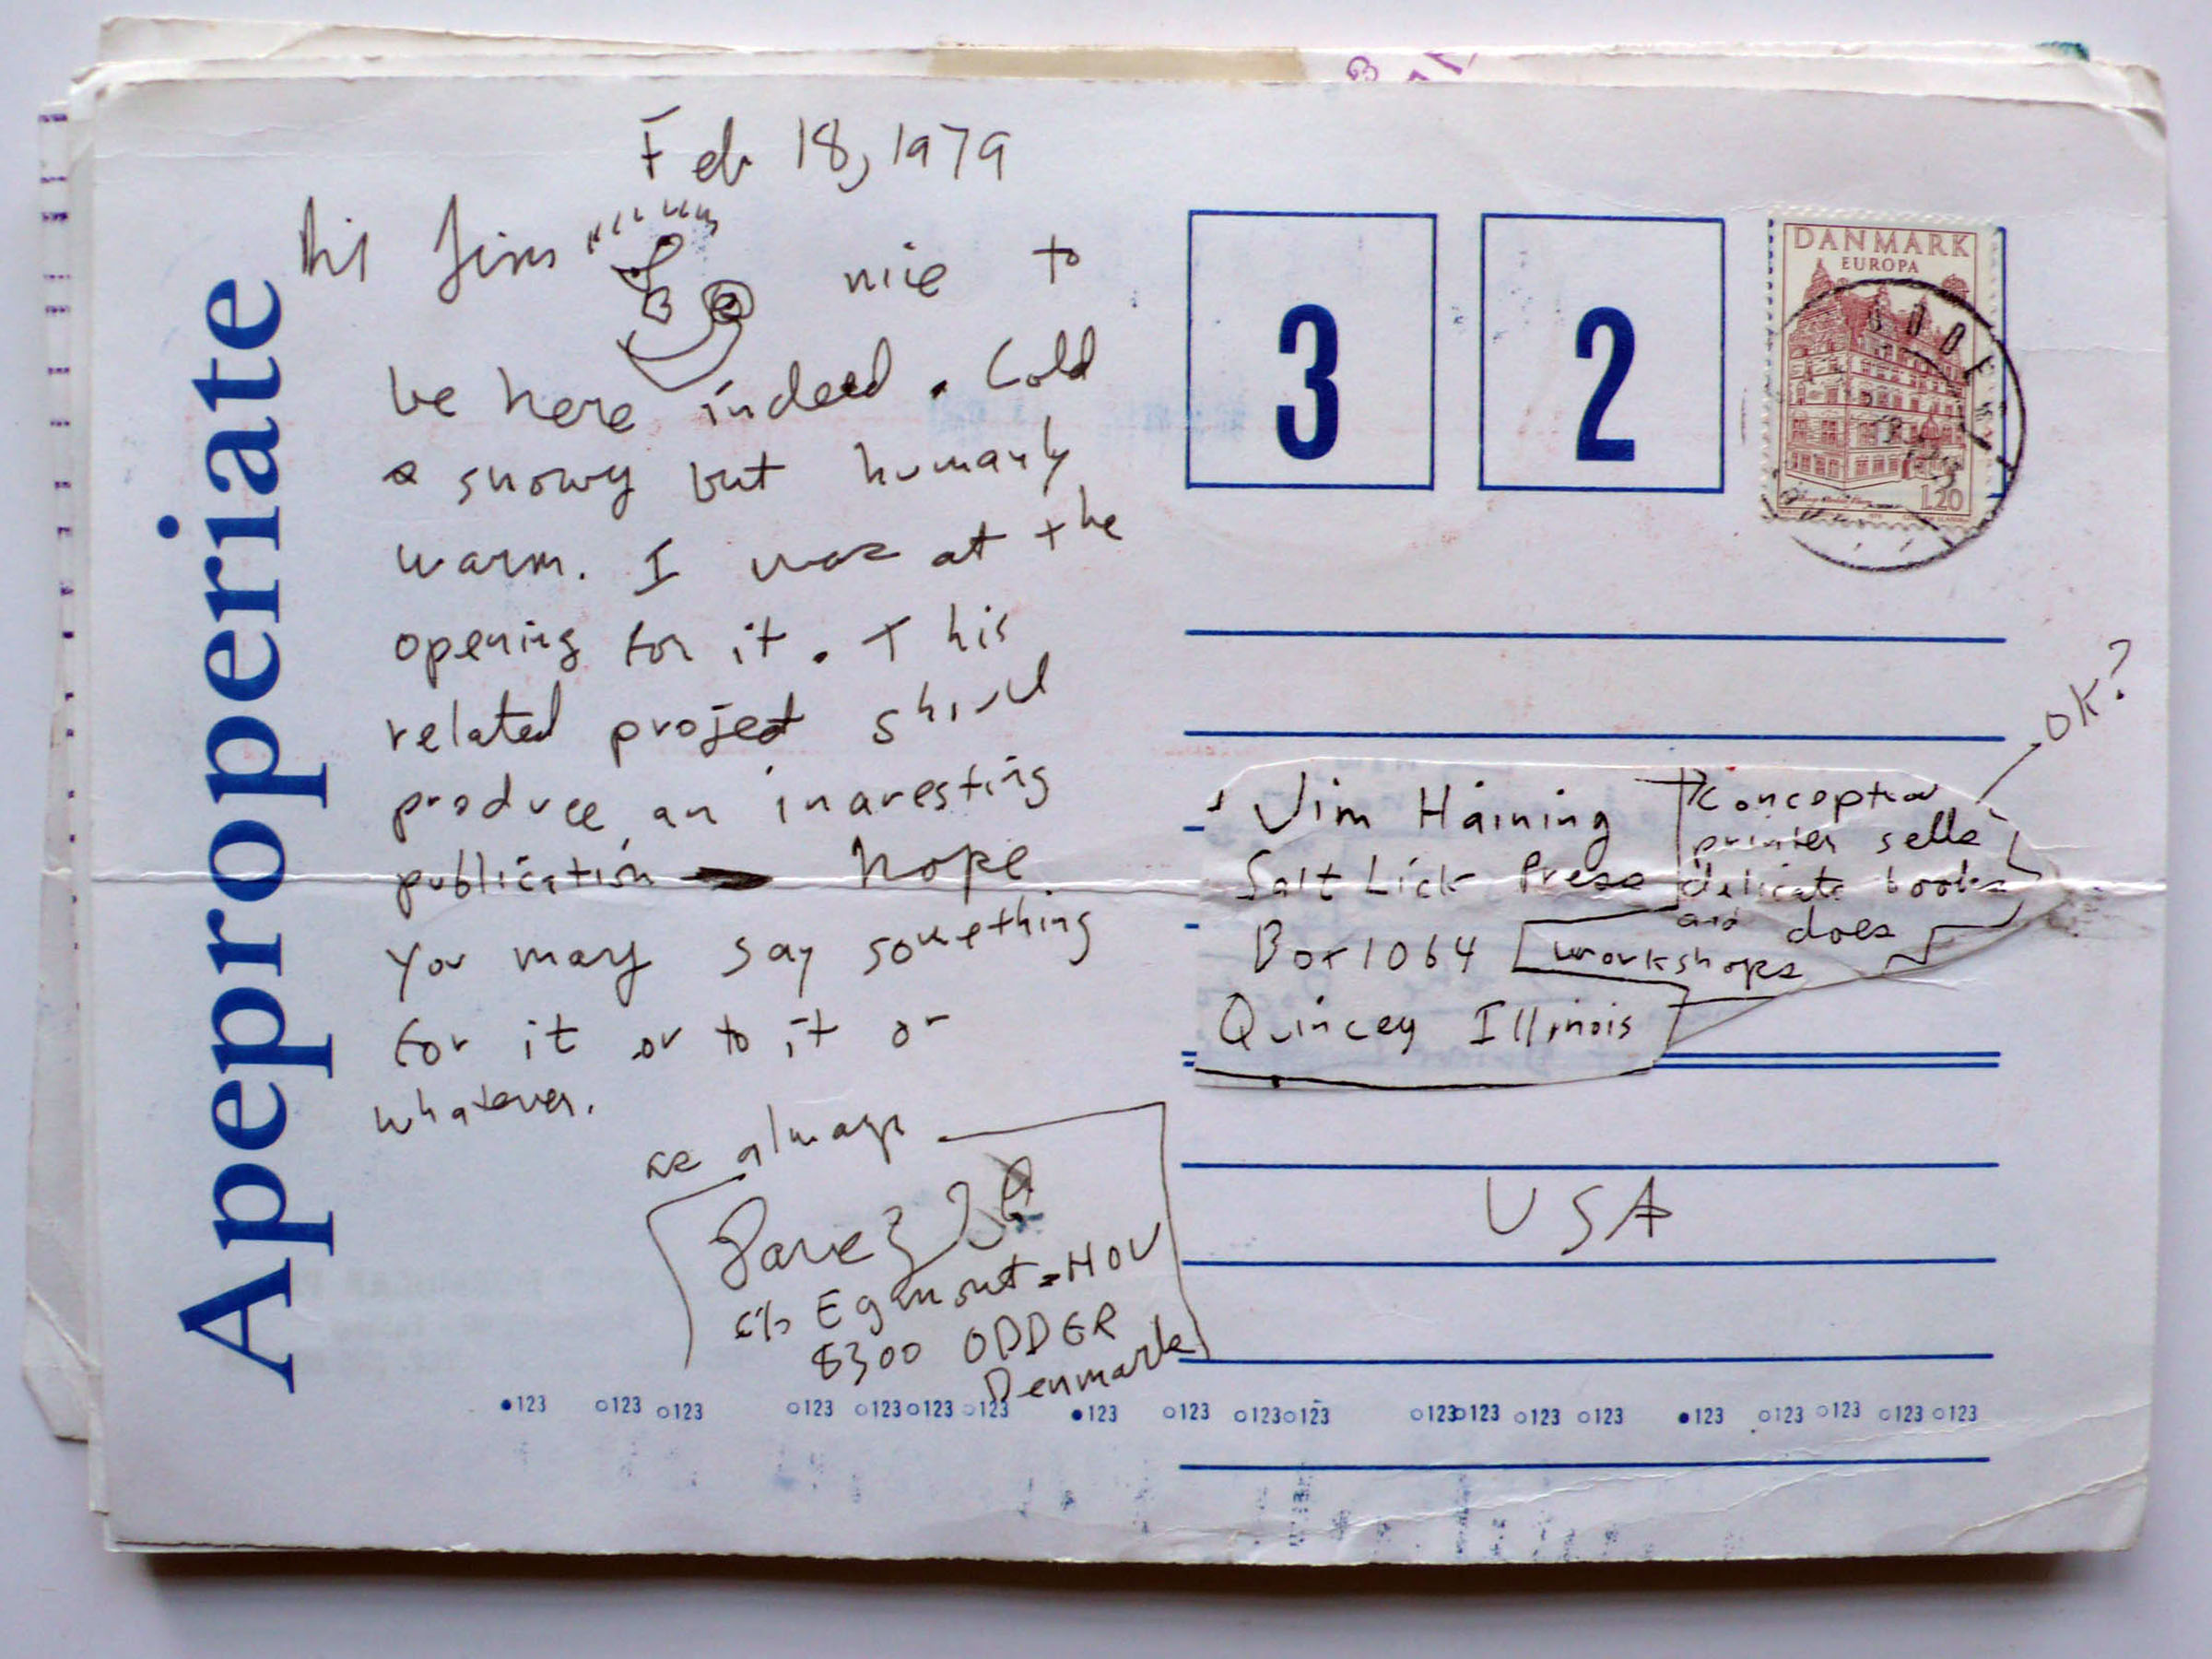 Apeproperiate
Feb 18, 1979
hi Jim nice to
be here indeed. Cold
& snowy but humanly
warm. I was at the
opening for it. This
related project should
produce an inaresting
publication hope
you may say something
for it or to it or
whatever.
as always
c/o Egmont-HOV
8300 ODDER
Denmark
3 2
DANMARK
EUROPA
120
OK?
Jim Haining
Salt Lick Press
Box 1064
Quincey Illinois
Conceptual
printer sells
delicate books
and does
workshops
USA
●123 ○123 ○123 ○123 ○123 ○123 ○123 ●123 ○123 ○123 ○123 ○123 ○123 ○123 ○123 ●123 ○123 ○123 ○123 ○123